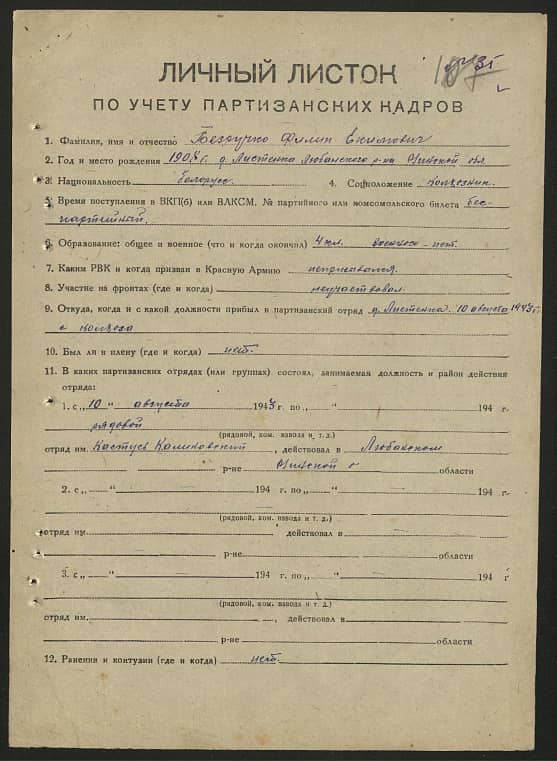 ЛИЧНЫЙ ЛИСТОК
ПО УЧЕТУ ПАРТИЗАНСКИХ КАДРОВ
1. Фамилия, имя и отчество Безручко Филип Екимович
2. Год и место рождения 1908 г. д. Листенка Любанского р-на Минской обл
3. Национальность белорусс. 4. Соцположение колхозник.
5. Время поступления в ВКП(б) или ВЛКСМ, № партийного или комсомольского билета бес-
партийный.
6. Образование: общее и военное (что и когда окончил) 4 кл. военного - нет.
7. Каким РВК и когда призван в Красную Армию непризывался.
8. Участие на фронтах (где и когда) неучаствовал.
9. Откуда, когда и с какой должности прибыл в партизанский отряд д. Листенка. 10 августа 1943 г.
с колхоза
10. Был ли в плену (где и когда) нет.
11. В каких партизанских отрядах (или группах) состоял, занимаемая должность и район действия
отряда:
1. с „10 " августа 1943 г. по „ " 194 г.
рядовой
(рядовой, ком. взвода и т. д.)
отряд им. Кастусь Калиновский, действовал в Любанском
р-не Минской о области
2. с „ " 194 г. по „ " 194 г.
(рядовой, ком. взвода и т. д.)
отряд им. действовал в
р-не области
3. с „ " 194 г. по „ " 194 г
(рядовой, ком. взвода и т. д.)
отряд им. , действовал в
р-не области
12. Ранения и контузии (где и когда) нет.